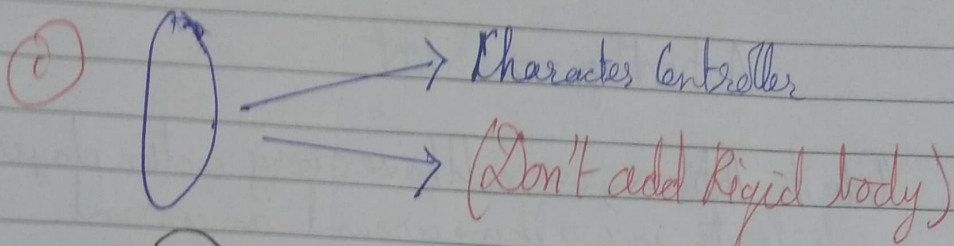 Character Controller
(Don't add Rigid body)